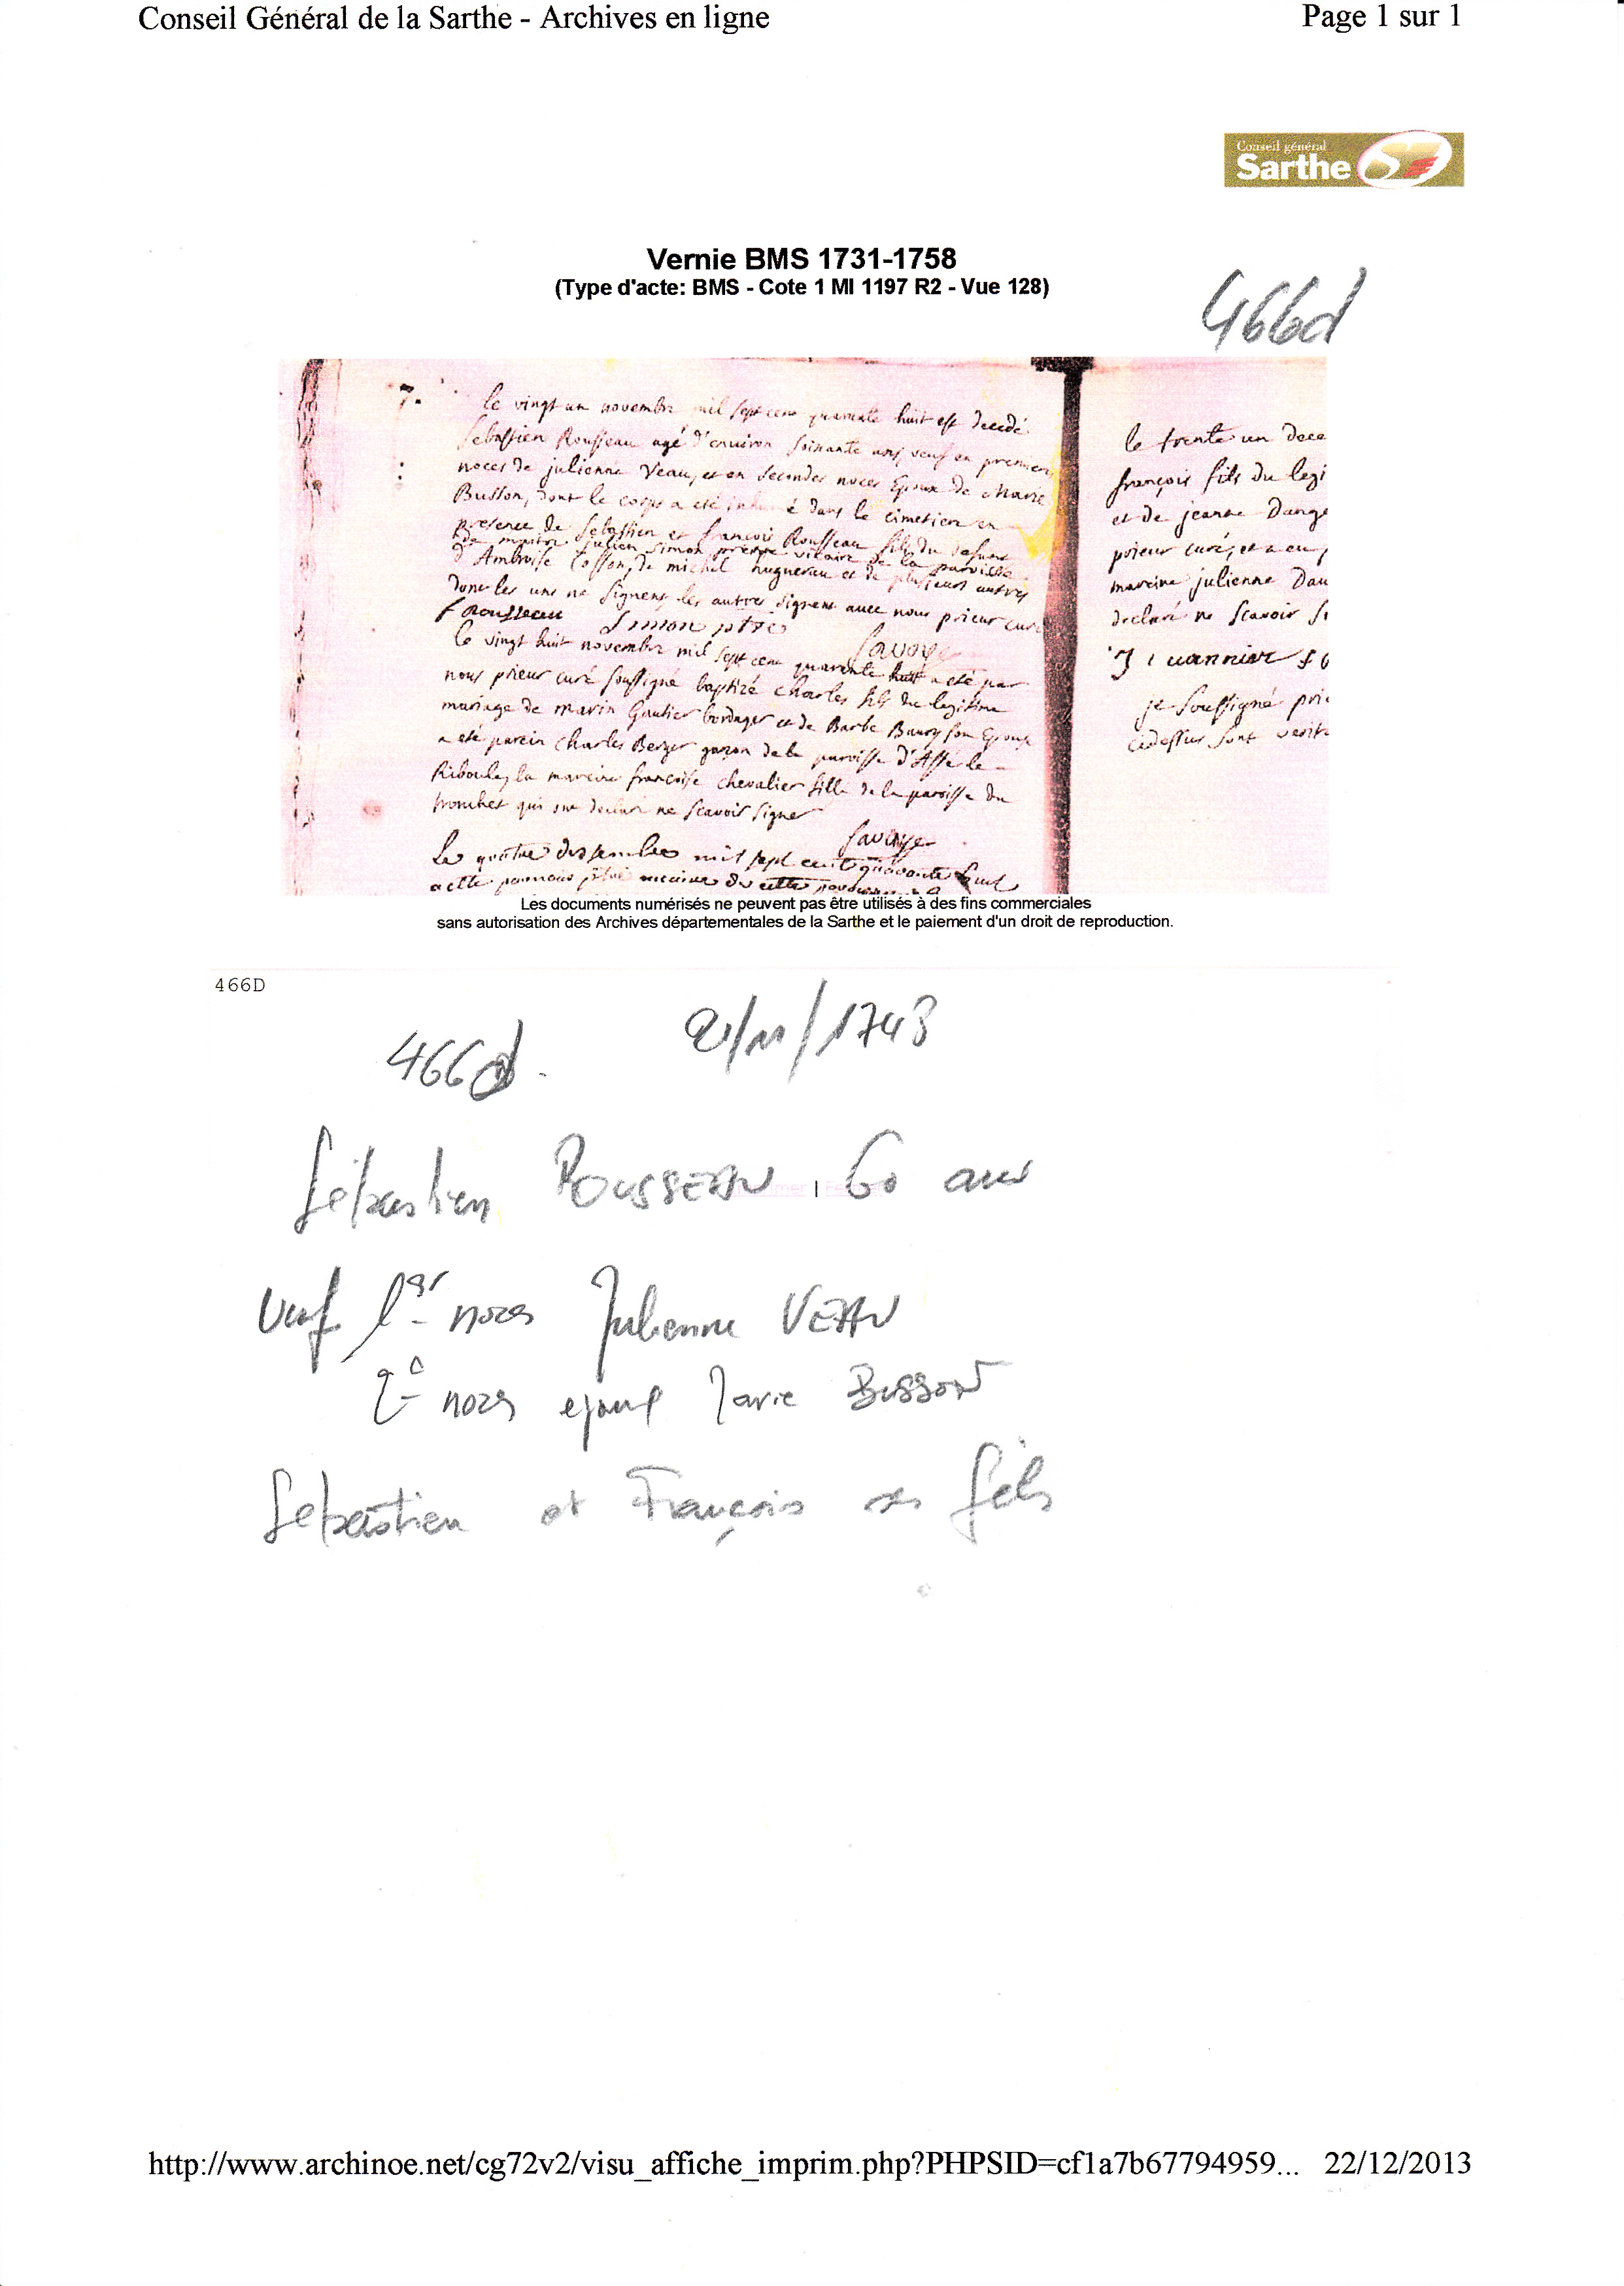 Conseil Général de la Sarthe - Archives en ligne
Page 1 sur 1
Conseil général
Sarthe
Vernie BMS 1731-1758
(Type d'acte: BMS - Cote 1 MI 1197 R2 - Vue 128)
466d
7.
le vingt un novembre mil sept cens quarante huit est decedé
Sebastien Rousseau agé d'environ soixante ans, veuf en premieres
noces de julienne Veau, et en secondes noces Epoux de Marie
Busson, dont le corps a eté inhumé dans le cimetiere en
presence de Sebastien et francois Rousseau fils du defunt
de maitre julien Simon pretre vicaire de la paroisse
d'Ambroise Cosson, de michel hugnereau et de plusieurs autres
dont les uns ne signent, les autres signent avec nous prieur curé
f rousseau Simon ptre
Savoye
le vingt huit novembre mil sept cens quarante huit a eté par
nous prieur curé soussigné baptizé charles fils du legitime
mariage de marin Gautier bordager et de Barbe Baury son Epouse
a eté parein charles Berger garçon de la paroisse d'Assé le
Riboule, la mareine françoise chevalier fille de la paroisse du
tronchet qui ont declaré ne scavoir signer
Savoye
Le quatre dessembre mil sept cent quarante huit
le trente un dece
françois fils du legi
et de jeanne Dange
prieur curé, et a eu
mareine julienne Dau
declaré ne scavoir si
je soussigné pri
cidessus sont verit
Les documents numérisés ne peuvent pas être utilisés à des fins commerciales
sans autorisation des Archives départementales de la Sarthe et le paiement d'un droit de reproduction.
466D
466d. 21/11/1748
Sébastien ROUSSEAU 60 ans
Veuf 1er noces Julienne VEAU
2e noces epoux Marie BUSSON
Sebastien et François ses fils
http://www.archinoe.net/cg72v2/visu_affiche_imprim.php?PHPSID=cf1a7b67794959... 22/12/2013